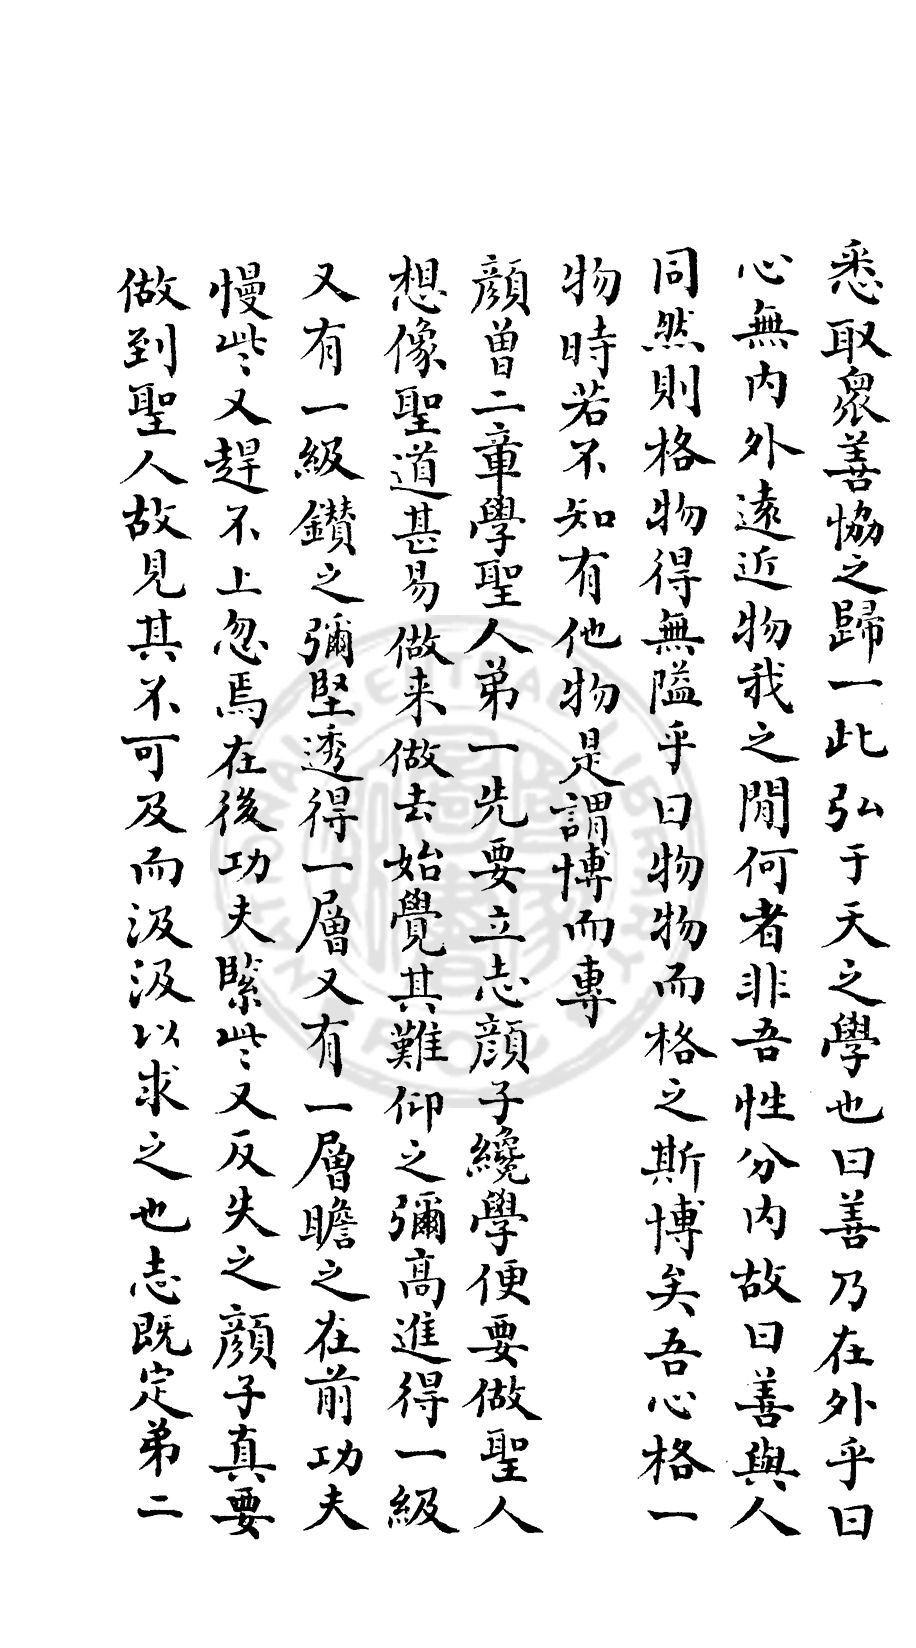 悉取眾善恊之歸一此弘于天之學也曰善乃在外乎曰
心無內外遠近物我之閒何者非吾性分內故曰善與人
同然則格物得無隘乎曰物物而格之斯博矣吾心格一
物時若不知有他物是謂博而專
顏曾二章學聖人弟一先要立志顏子纔學便要做聖人
想像聖道甚易做来做去始覺其難仰之彌高進得一級
又有一級鑽之彌堅透得一層又有一層瞻之在前功夫
慢些又趕不上忽焉在後功夫緊些又反失之顏子真要
做到聖人故見其不可及而汲汲以求之也志既定弟二